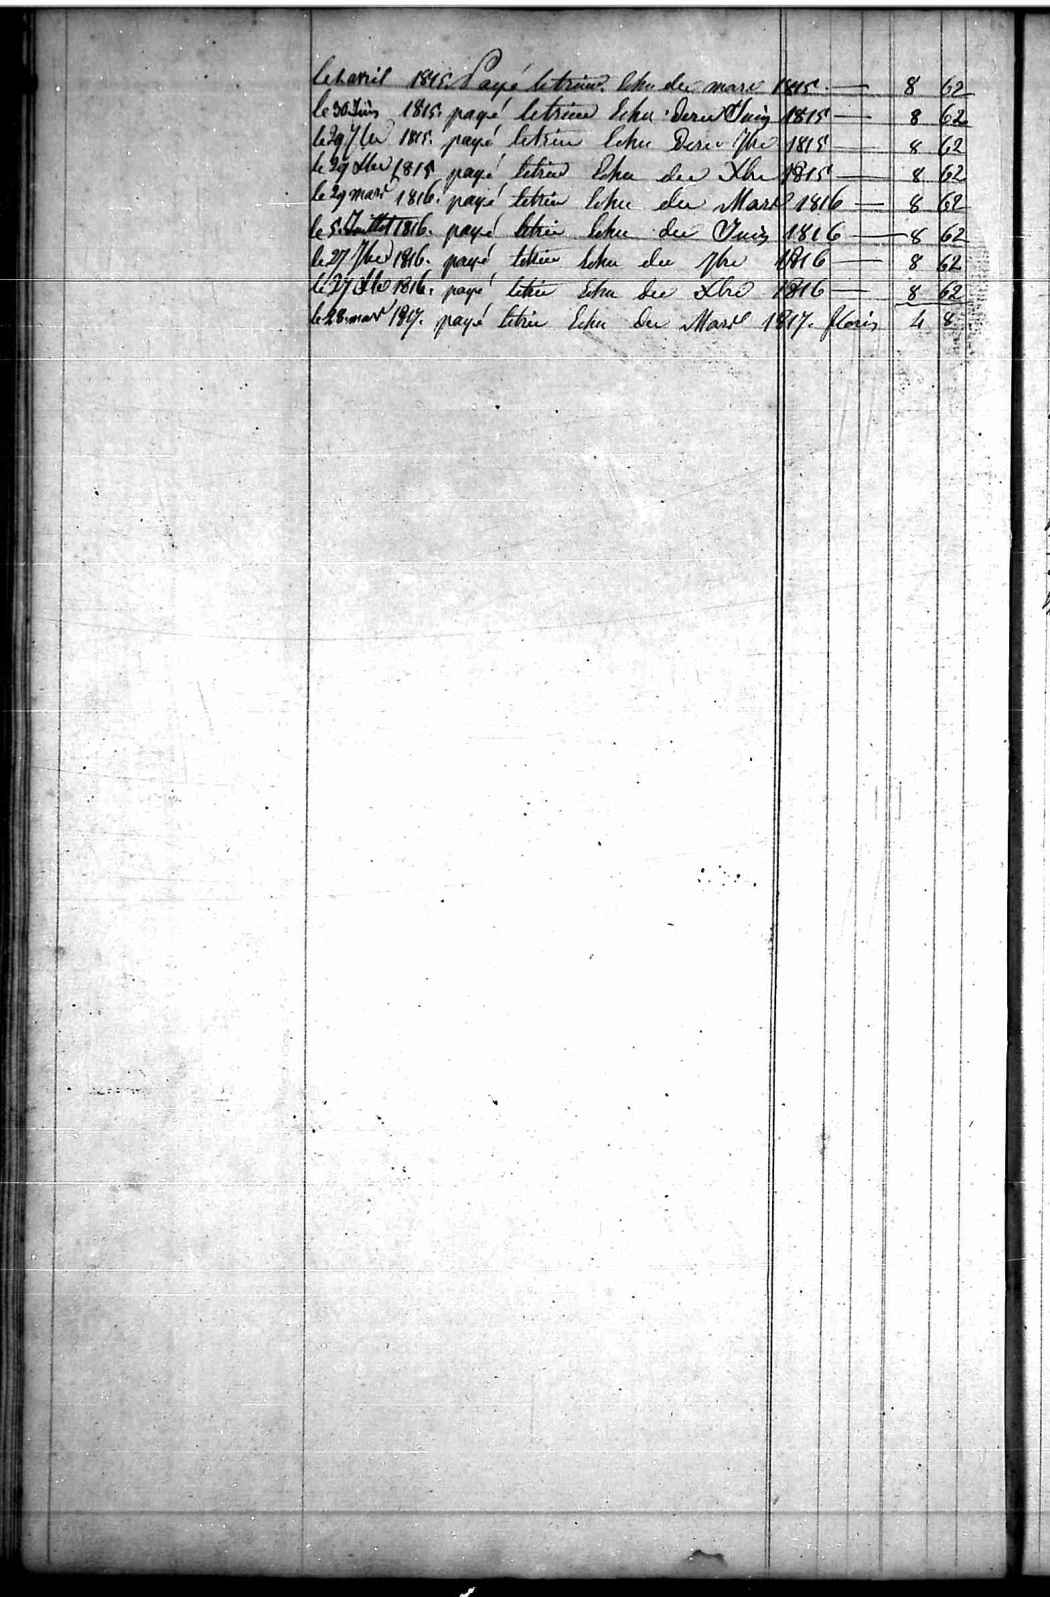 le 1 avril 1815. Payé le trim. Echu de mars 1815. — 8 62
le 30 Juin 1815. payé le trim Echu Dern Juin 1815 — 8 62
le 29 7bre 1815. payé le trim Echu Dern 7bre 1815 — 8 62
le 29 Xbre 1815 payé le trim Echu du Xbre 1815 — 8 62
le 29 mars 1816. payé le trim Echu du Mars 1816 — 8 62
le 5 Juillet 1816. payé le trim Echu du Juin 1816 — 8 62
le 27 7bre 1816. payé le trim Echu du 7bre 1816 — 8 62
le 27 Xbre 1816. payé le trim Echu du Xbre 1816 — 8 62
le 28 mars 1817. payé le trim Echu du Mars 1817. floris 4 8